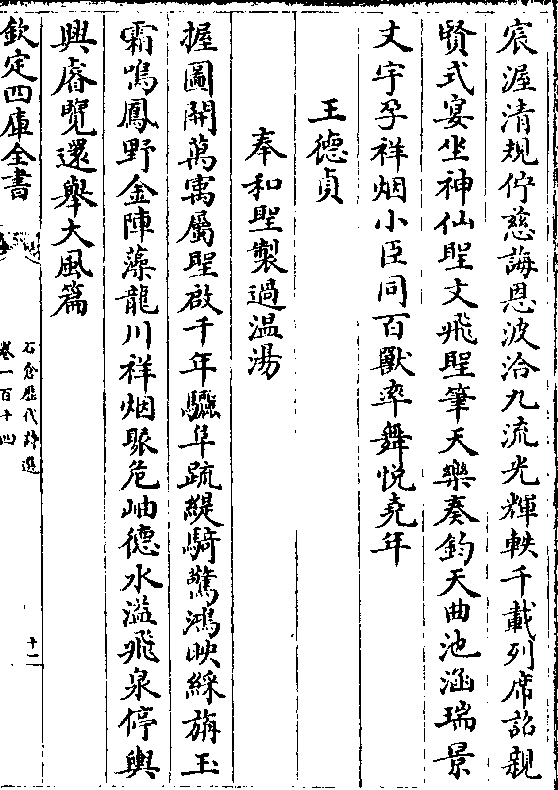 宸渥清規佇慈誨恩波洽九流光輝軼千載列席詔親
賢式宴坐神仙聖文飛聖筆天樂奏鈞天曲池涵瑞景
文宇孕祥烟小臣同百獸率舞悅堯年
王德貞
奉和聖製過温湯
握圖開萬㝢屬聖啟千年驪阜疏緹騎驚鴻映綵旃玉
霜鳴鳳野金陣藻龍川祥烟聚危岫德水溢飛泉停輿
興睿覽還舉大風篇
欽定四庫全書
石倉歷代詩選
卷一百十四
十二